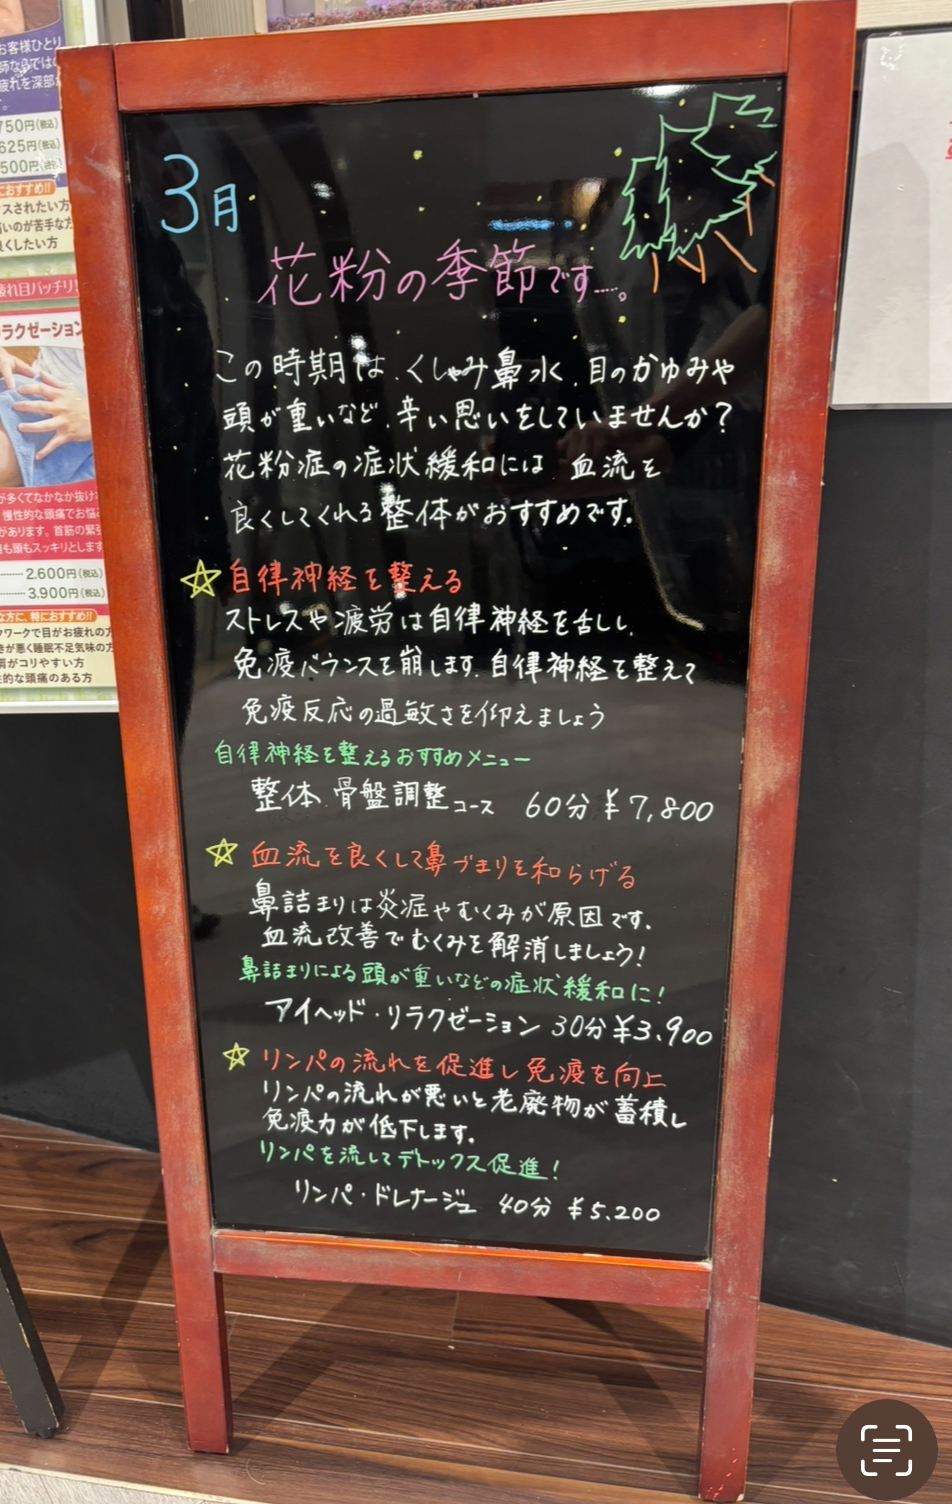 お客様ひとり
師ならではの
疲れを深部
750円(税込)
625円(税込)
500円(税込)
におすすめ!!
スされたい方
いのが苦手な方
良くしたい方
疲れ目バッチリ!
ラクゼーション
が多くてなかなか抜け
慢性的な頭痛でお悩
があります。首筋の緊
目も頭もスッキリとします
2.600円(税込)
3.900円(税込)
な方に、特におすすめ!!
クワークで目がお疲れの方
きが悪く睡眠不足気味の方
肩がコリやすい方
性的な頭痛のある方
3月
花粉の季節です……。
この時期は、くしゃみ鼻水、目のかゆみや
頭が重いなど、辛い思いをしていませんか?
花粉症の症状緩和には 血流を
良くしてくれる整体がおすすめです。
☆自律神経を整える
ストレスや疲労は自律神経を舌し、
免疫バランスを崩します。自律神経を整えて
免疫反応の過敏さを仰えましょう
自律神経を整えるおすすめメニュー
整体、骨盤調整コース 60分 ¥7,800
☆ 血流を良くして鼻づまりを和らげる
鼻詰まりは炎症やむくみが原因です。
血流改善でむくみを解消しましょう!
鼻詰まりによる頭が重いなどの症状緩和に!
アイヘッド・リラクゼーション 30分 ¥3.900
☆ リンパの流れを促進し免疫を向上
リンパの流れが悪いと老廃物が蓄積し
免疫力が低下します。
リンパを流してデトックス促進!
リンパ・ドレナージュ 40分 ¥5.200